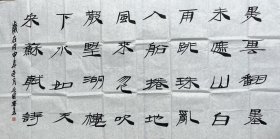 黑雲翻墨
未遮山白
雨跳珠亂
入船捲地
風來忽吹
散望湖樓
下水如天
宋蘇軾詩